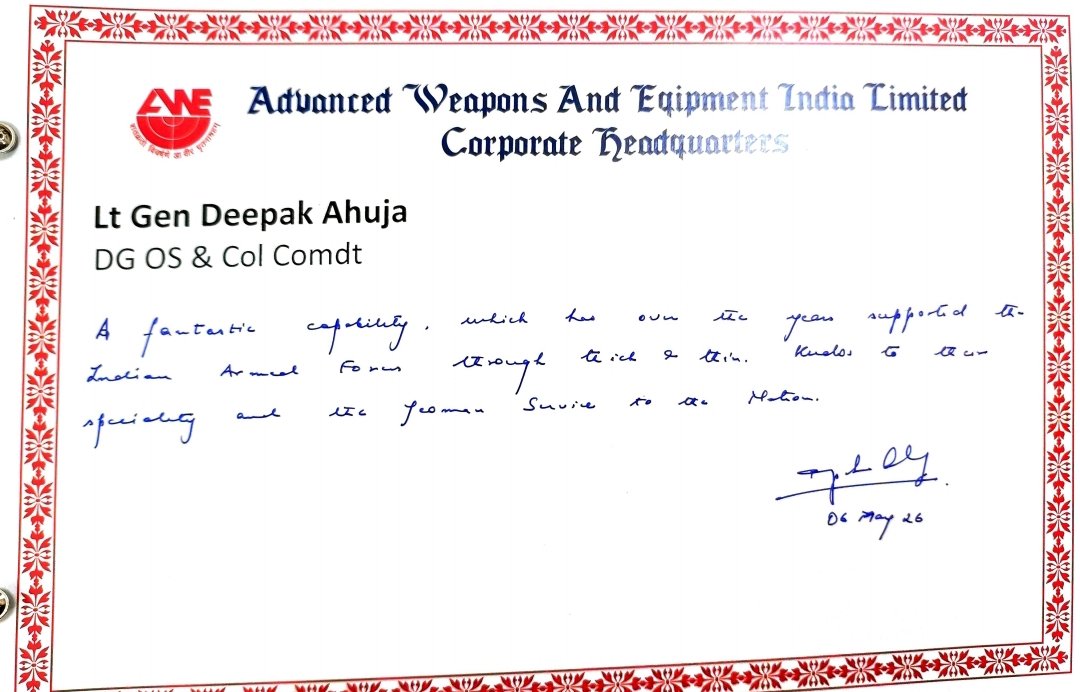 AWE
Advanced Weapons And Eqipment India Limited
Corporate Headquarters
Lt Gen Deepak Ahuja
DG OS & Col Comdt
A fantastic capability, which has over the years supported the
Indian Armed Forces through thick & thin. Kudos to their
speciality and the Yeoman Service to the Nation.
06 May 26